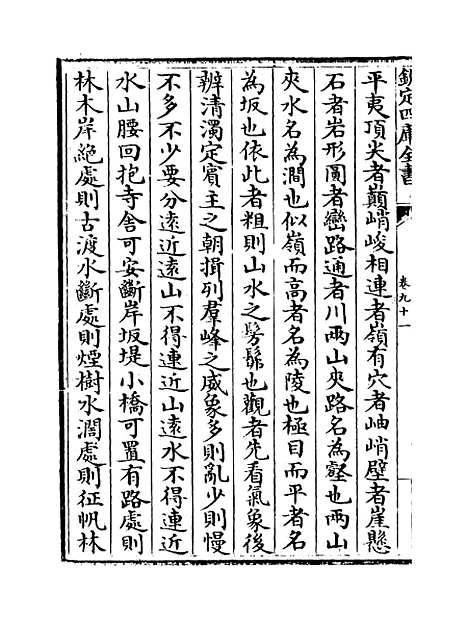 欽定四庫全書
卷九十一
平夷頂尖者巔峭峻相連者嶺有穴者岫峭壁者崖懸
石者岩形圓者巒路通者川兩山夾路名為壑也兩山
夾水名為澗也似嶺而高者名為陵也極目而平者名
為坂也依此者粗則山水之髣髴也觀者先看氣象後
辨清濁定賓主之朝揖列羣峰之威象多則亂少則慢
不多不少要分遠近遠山不得連近山遠水不得連近
水山腰回抱寺舍可安斷岸坂堤小橋可置有路處則
林木岸絶處則古渡水斷處則煙樹水濶處則征帆林